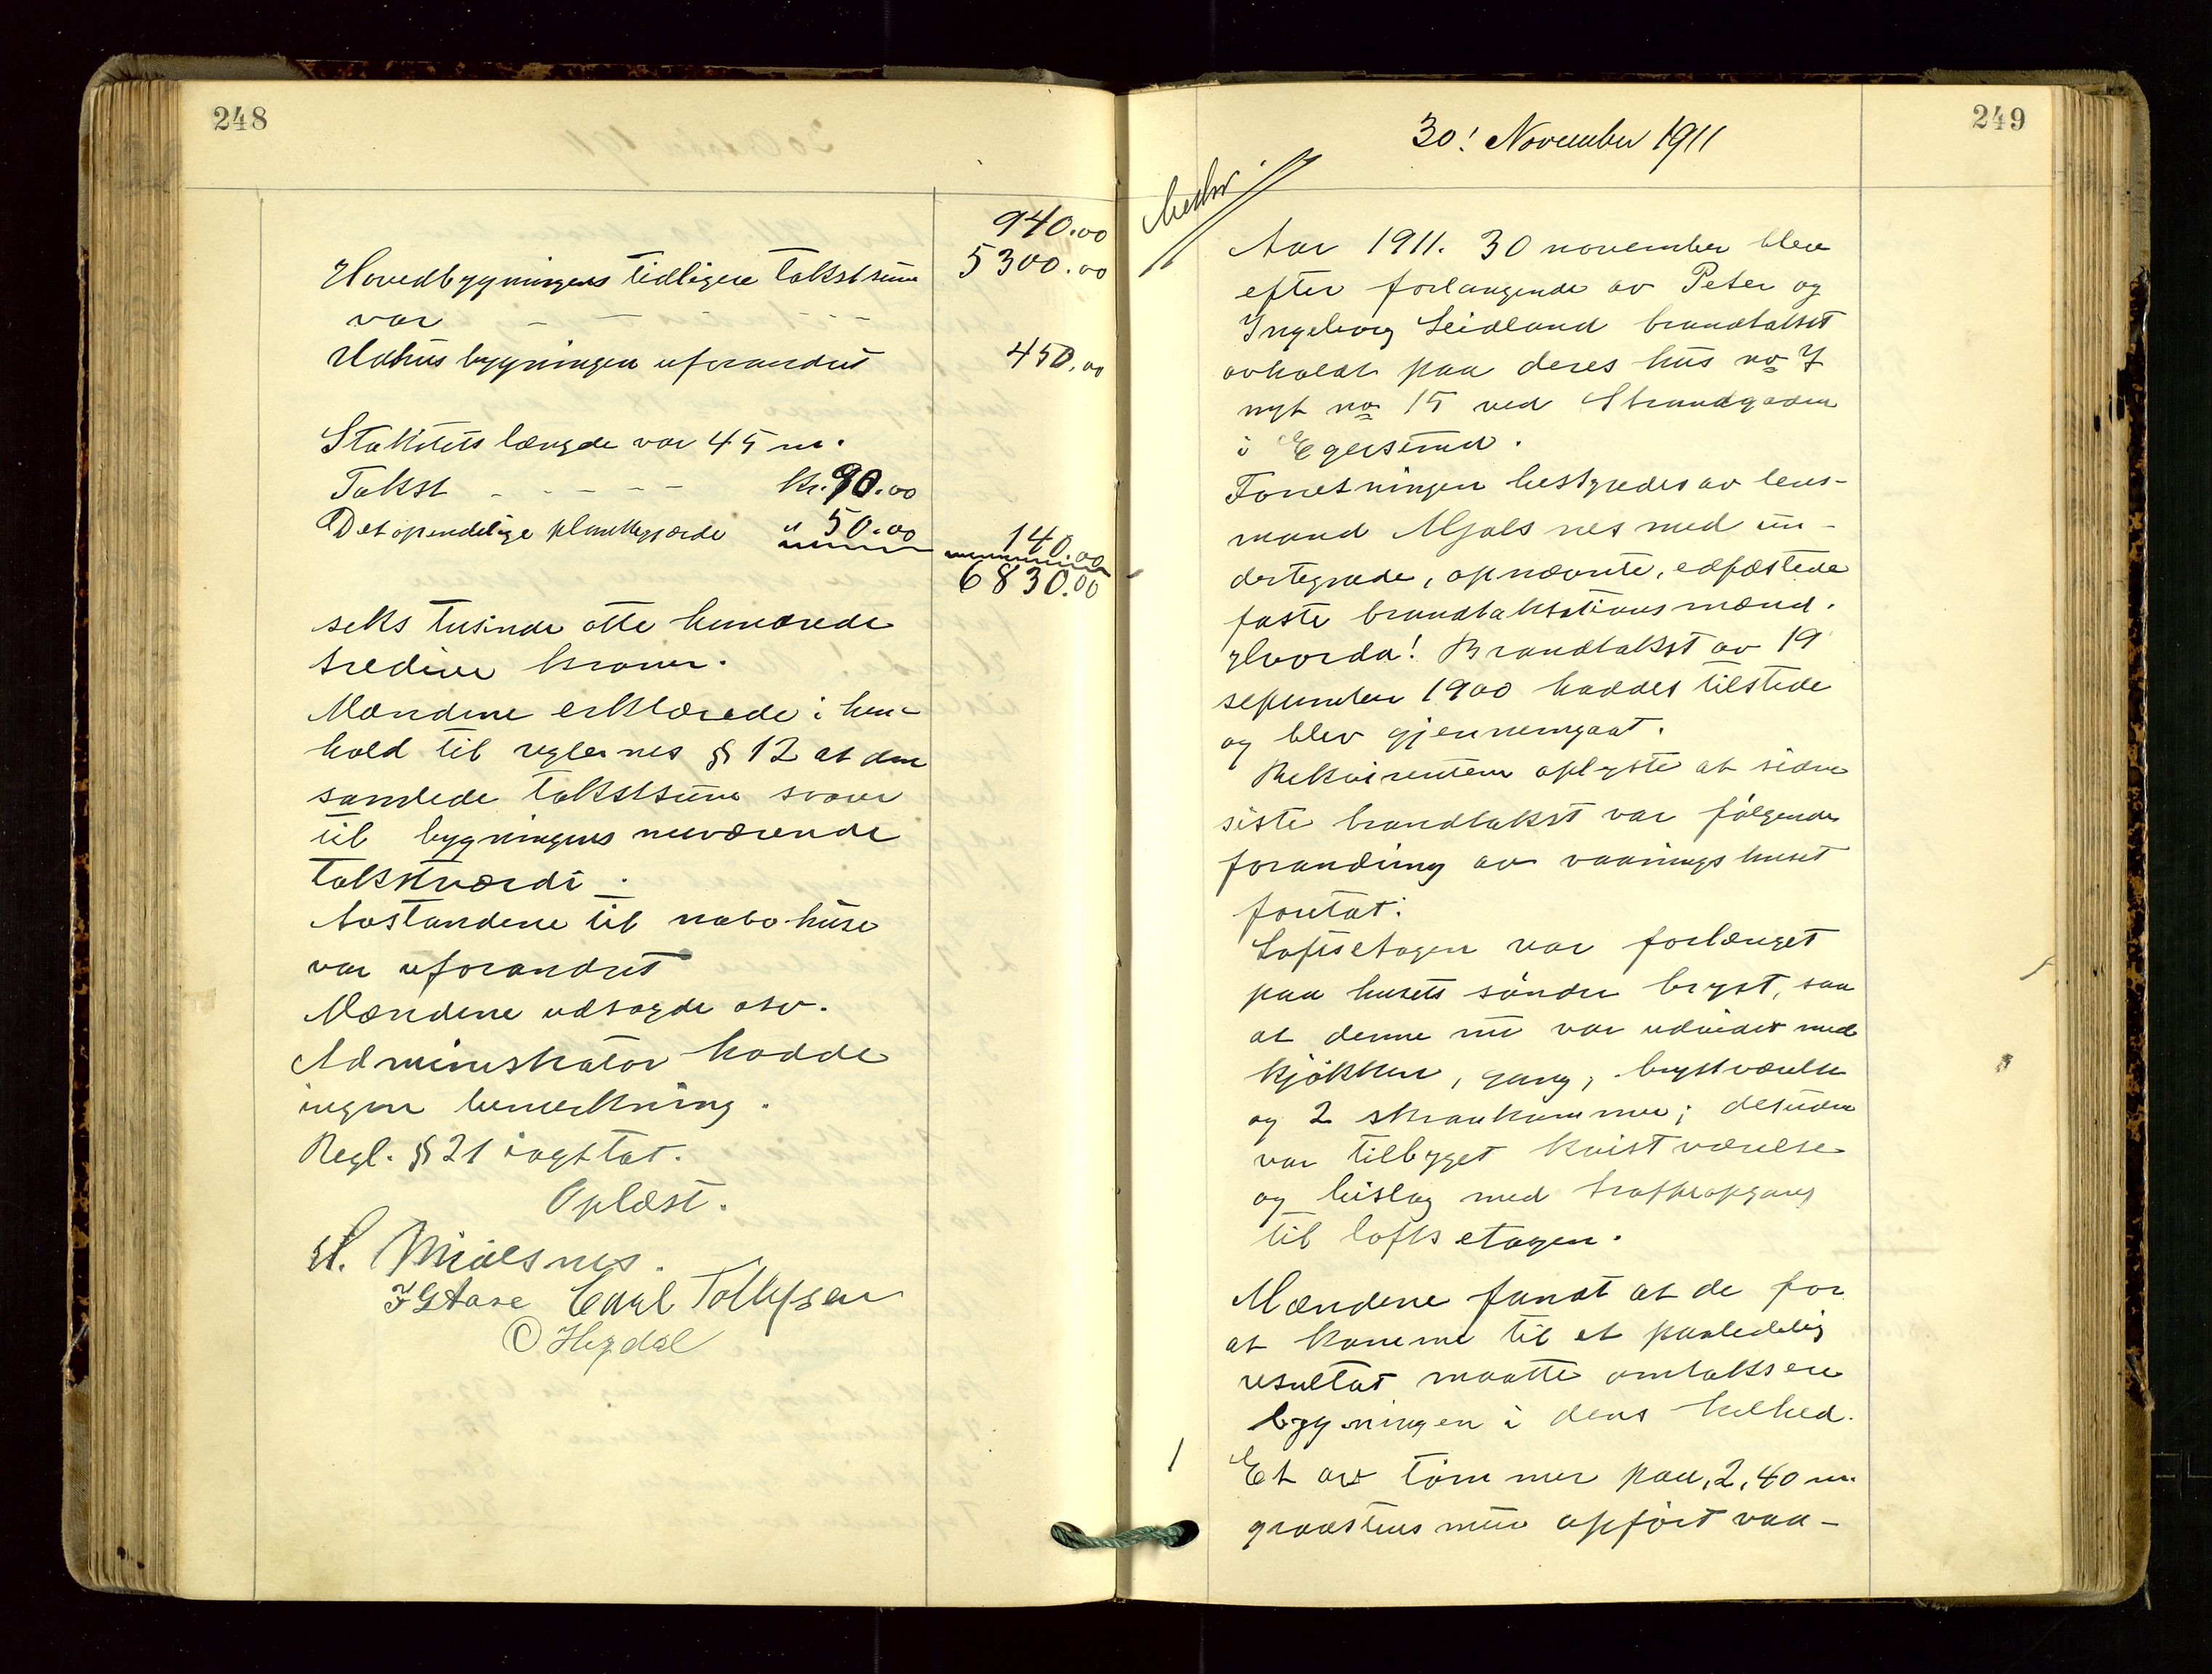 248
940.00
Hovedbygningens tidligere takstsum 5300.00
var - - -
Uthusbygningen uforandret 450.00
Stakitets længde var 45 m.
Takst - - - - - kr. 90.00
Det opendelige plankegjærde " 50.00 140.00
6830.00
seks tusinde otte hundrede
tredive kroner.
Mændene erklærede i hen-
hold til reglernes § 12 at den
samlede takstsum svarer
til bygningens nuværende
takstværdi.
Avstandene til nabohuse
var uforandret
Mændene utsagde osv.
Administrator hadde
ingen bemerkning.
Regl. § 21 iagttat.
Oplæst.
H. Mjølsnes.
FGAase Carl Tollefsen
O Hegdal
249
30! November 1911
Aar 1911. 30 november blev
efter forlangende av Peter og
Ingeborg Leidland brandtakst
avholdt paa deres hus no 7
nyt no 15 ved Strandgaden
i Egersund.
Forretningen bestyredes av lens-
mand Mjølsnes med un-
dertegnede, opnævnte, edfæstede
faste brandtakstationsmænd.
Hvorda! Brandtakst av 19
september 1900 haddes tilstede
og blev gjennemgaat.
Rekvirenten oplyste at siden
siste brandtakst var følgende
forandring av vaaningshuset
foretat:
Loftsetagen var forlænget
paa husets søndre bryst, saa
at denne nu var utvidet med
kjøkken, gang, brystværelse
og 2 skraakammer; desuden
var tilbygget kvistværelse
og bislag med trappeopgang
til loftsetagen.
Mændene fandt at de for
at komme til et paalidelig
resultat maatte omtaksere
bygningen i dens helhed.
1 Et av tømmer paa 2,40 m.
graastens mur opført vaa-